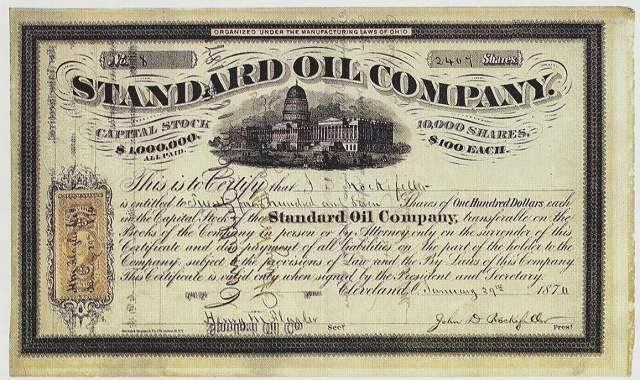 ORGANIZED UNDER THE MANUFACTURING LAWS OF OHIO
No. 8
2407 Shares
STANDARD OIL COMPANY.
CAPITAL STOCK 10,000 SHARES,
$1,000,000 $100 EACH.
ALL PAID.
This is to Certify that J D Rockefeller
is entitled to four hundred and seven Shares of One Hundred Dollars each
in the Capital Stock of the Standard Oil Company, transferable on the
Books of the Company in person or by Attorney only on the surrender of this
Certificate and the payment of all liabilities on the part of the holder to the
Company, subject to the provisions of Law and the By Laws of this Company
This Certificate is valid only when signed by the President and Secretary.
Cleveland, O. January 29th 1870
Henry M. Flagler Secy. John D Rockefeller Prest